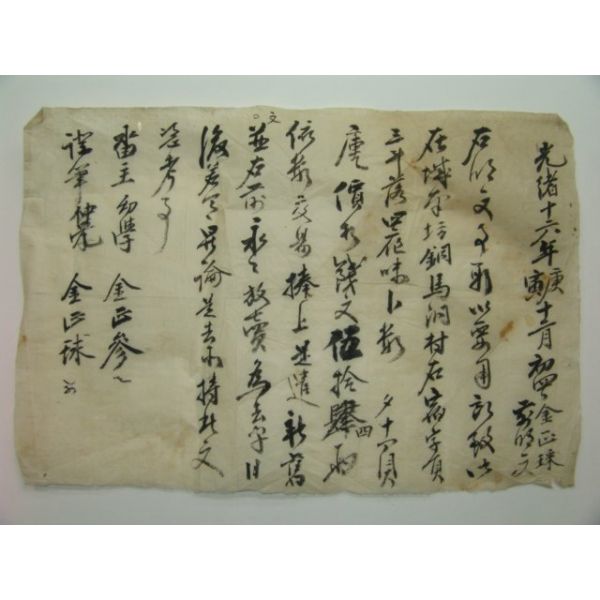 光緖十六年庚寅十二月初 金正球前明文
右明文事段以要用所致
在城 坊銅馬洞村右宿字員
三斗落四夜味卜數 夕十四負
庫價折錢文伍拾肆四兩
依數交易捧上是遣新舊
文並右前永〻放賣爲去乎日
後若有異論是去等持此文
憑考事
畓主幼學 金正參
證筆仲兄 金正球